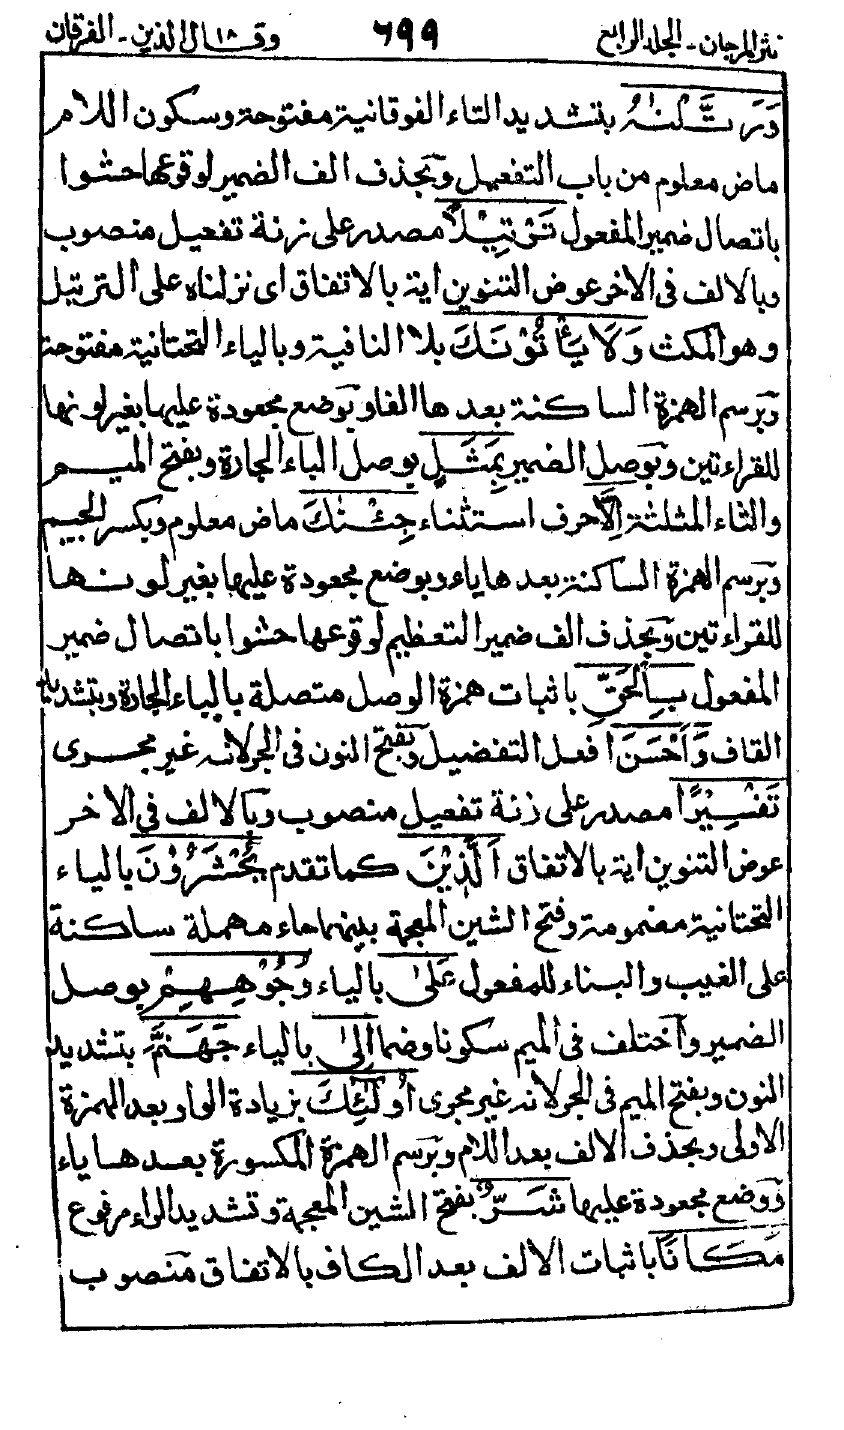 نثر المرجان - الجلد الرابع ٦٩٩ وقال الذين ١٨ - الفرقان
وَرَتَّلْنٰهُ بتشديد التاء الفوقانية مفتوحة وسكون اللام
ماض معلوم من باب التفعيل وبحذف الف الضمير لوقوعها حشوا
باتصال ضمير المفعول تَرْتِيْلًا مصدر على زنة تفعيل منصوب
وبالالف فى الاخر عوض التنوين اية بالاتفاق اى نزلناه على الترتيل
وهو المكث وَلَا يَأْتُوْنَكَ بلا النافية وبالياء التحتانية مفتوحة
وبرسم الهمزة الساكنة بعدها الفا وبوضع مجعودة عليها بغير لونها
للقراءتين وبوصل الضمير بِمَثَلٍ بوصل الباء الجارة وبفتح الميم
والثاء المثلثة اِلَّا حرف استثناء جِئْنٰكَ ماض معلوم وبكسر الجيم
وبرسم الهمزة الساكنة بعدها ياء وبوضع مجعودة عليها بغير لونها
للقراءتين وبحذف الف ضمير التعظيم لوقوعها حشوا باتصال ضمير
المفعول بِالْحَقِّ باثبات همزة الوصل متصلة بالباء الجارة وبتشديد
القاف وَاَحْسَنَ افعل التفضيل وبفتح النون فى الجر لانه غير مجرى
تَفْسِيْرًا مصدر على زنة تفعيل منصوب وبالالف فى الاخر
عوض التنوين اية بالاتفاق اَلَّذِيْنَ كما تقدم يُحْشَرُوْنَ بالياء
التحتانية مضمومة وفتح الشين المعجمة بينهما حاء مهملة ساكنة
على الغيب والبناء للمفعول عَلٰى بالياء وُجُوْهِهِمْ بوصل
الضمير واختلف فى الميم سكونا وضما اِلٰى بالياء جَهَنَّمَ بتشديد
النون وبفتح الميم فى الجر لانه غير مجرى اُولٰٓئِكَ بزيادة الواو بعد الهمزة
الاولى وبحذف الالف بعد اللام وبرسم الهمزة المكسورة بعدها ياء
ووضع مجعودة عليها شَرٌّ بفتح الشين المعجمة وتشديد الراء مرفوع
مَكَانًا باثبات الالف بعد الكاف بالاتفاق منصوب